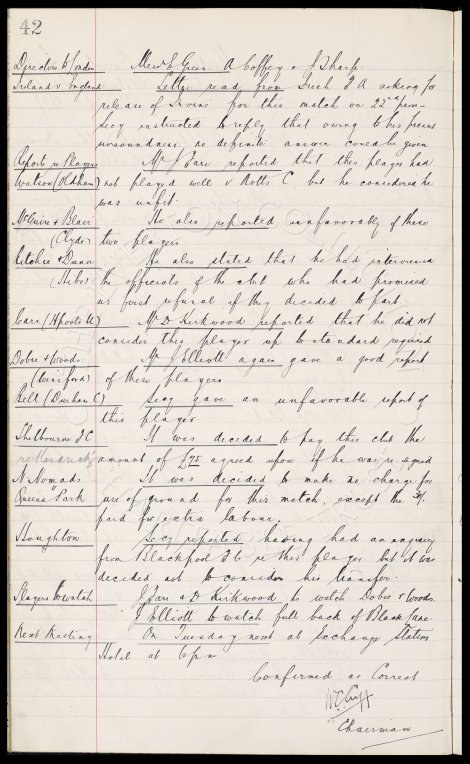 42
Directors to London Messrs E Green A Coffey & J Sharp.
Ireland v England Letter read from Irish F A asking for
release of Irvine for this match on 22nd prox-
Secy instructed to reply that owing to his present
unsoundness, no definite answer could be given
Reports re Players Mr J Fare reported that this player had
Watson (Oldham) not played well v Notts C, but he considered he
was unfit.
McGuire & Blair He also reported unfavorably of these
(Clyde) two players
Ritchie & Dunn He also stated that he had interviewed
(Hibs) the officials of the club who had promised
us first refusal if they decided to part.
Carr (Hpools U) Mr D Kirkwood reported that he did not
consider this player up to standard required
Dobie & Woods Mr J Elliott again gave a good report
(Winsford) of these players
Bell (Durham C) Secy gave an unfavorable report of
this player
Shelbourne F C It was decided to pay this club the
re amount of £75 agreed upon if he was re signed
N. Nomads It was decided to make no charge for
Queens Park use of ground for this match, except the
paid for extra labour.
Houghton Secy reported having had an enquiry
from Blackpool F C re this player but it was
decided not to consider his transfer.
Players to watch J Fare & D Kirkwood to watch Dobie & Woods
J Elliott to watch full back of Black Lane
Next Meeting On Tuesday next at Exchange Station
Hotel at 6 pm
Confirmed as Correct
W C Cuff
Chairman